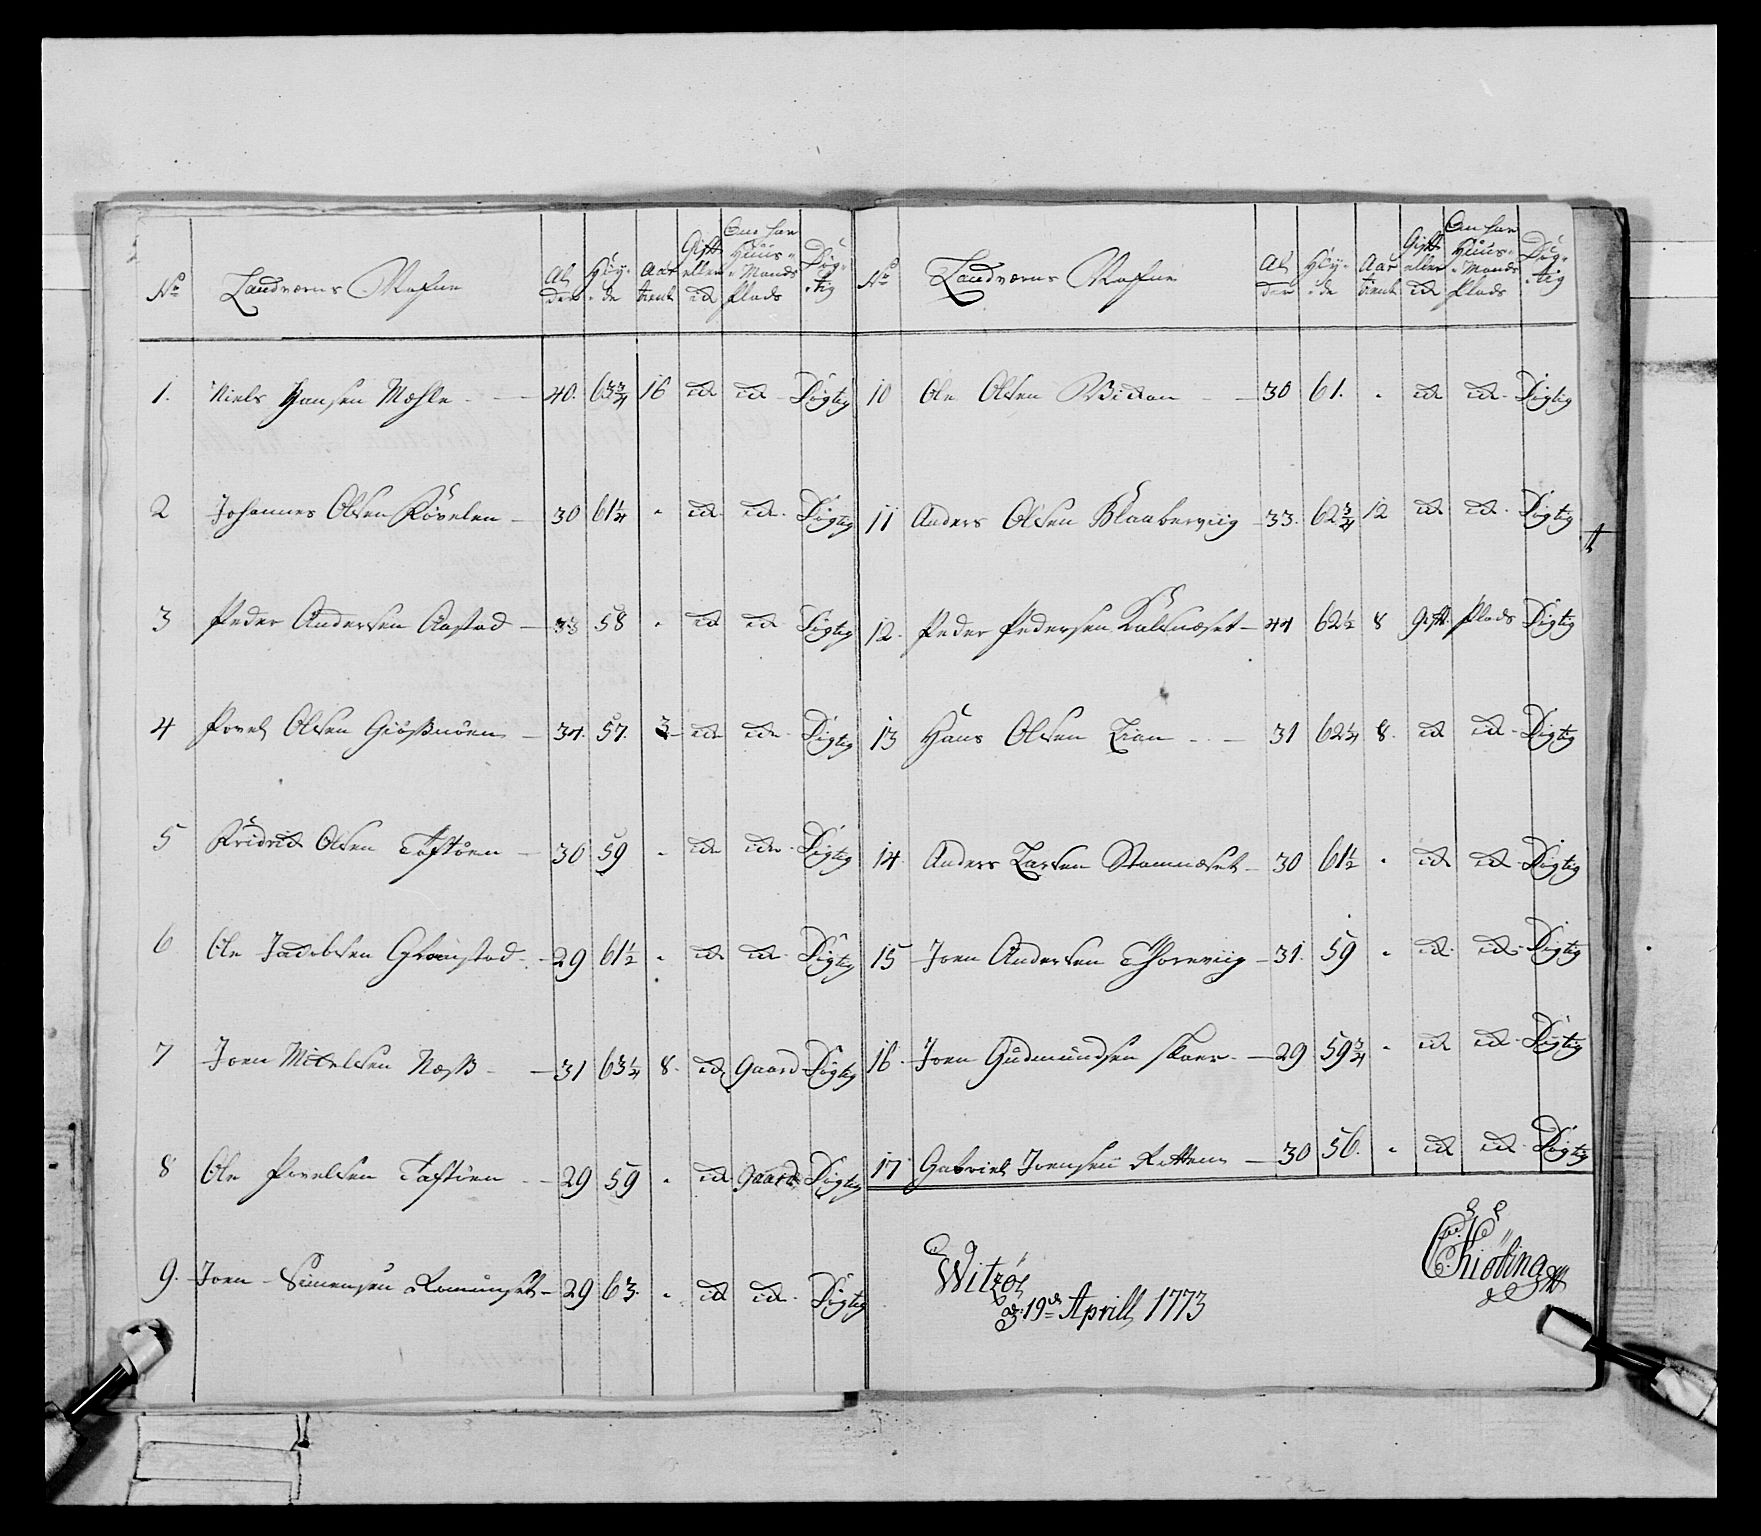 No Landværns Nafne Al der Høy de Aar tient Gift eller ei Om har Huus Mands Plads Dygtig
1. Niels Hansen Mæhle 40. 63 3/4 16 ei ei Dygtig
2 Johannes Olsen 30 61 1/4 " ei ei Dygtig
3 Peder Andersen Aastad 33 58 " ei ei Dygtig
4 Povel Olsen 34. 57. 3 ei ei Dygtig
5 Olsen Toftøen 30 59 " ei ei Dygtig
6 Ole Jacobsen 29 61 1/2 " ei ei Dygtig
7 Joen Michelsen Næss 31 63 1/4 8. ei Gaard Dygtig
8 Ole Povelsen Toftøen 29 59 " ei Gaard Dygtig
9. Joen Simensen Romundset 29 63. " ei ei Dygtig
No Landværns Nafne Al der Høy de Aar tient Gift eller ei Om har Huus Mands Plads Dygtig
10 Ole Olsen 30 61. " ei ei Dygtig
11 Anders Olsen Blaaberviig 33. 62 3/4 12 ei ei Dygtig
12. Peder Pedersen 44 62 1/2 8 Gift Plads Dygtig
13 Hans Olsen Lian 31 62 1/4 8. ei ei Dygtig
14. Anders Larsen Stamnæset 30 61 1/2 " ei ei Dygtig
15 Joen Andersen Thoreviig 31. 59 " ei ei Dygtig
16. Joen Gudmundsen 29 59 3/4 " ei ei Dygtig
17. Gabriel Joensen 30 56. " ei ei Dygtig
Witzøe
d: 19de Aprill 1773